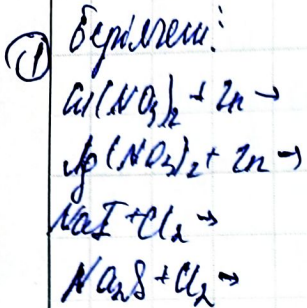 ① Берілгені:
Cu(NO₃)₂ + Zn →
Ag(NO₃)₂ + Zn →
NaI + Cl₂ →
Na₂S + Cl₂ →